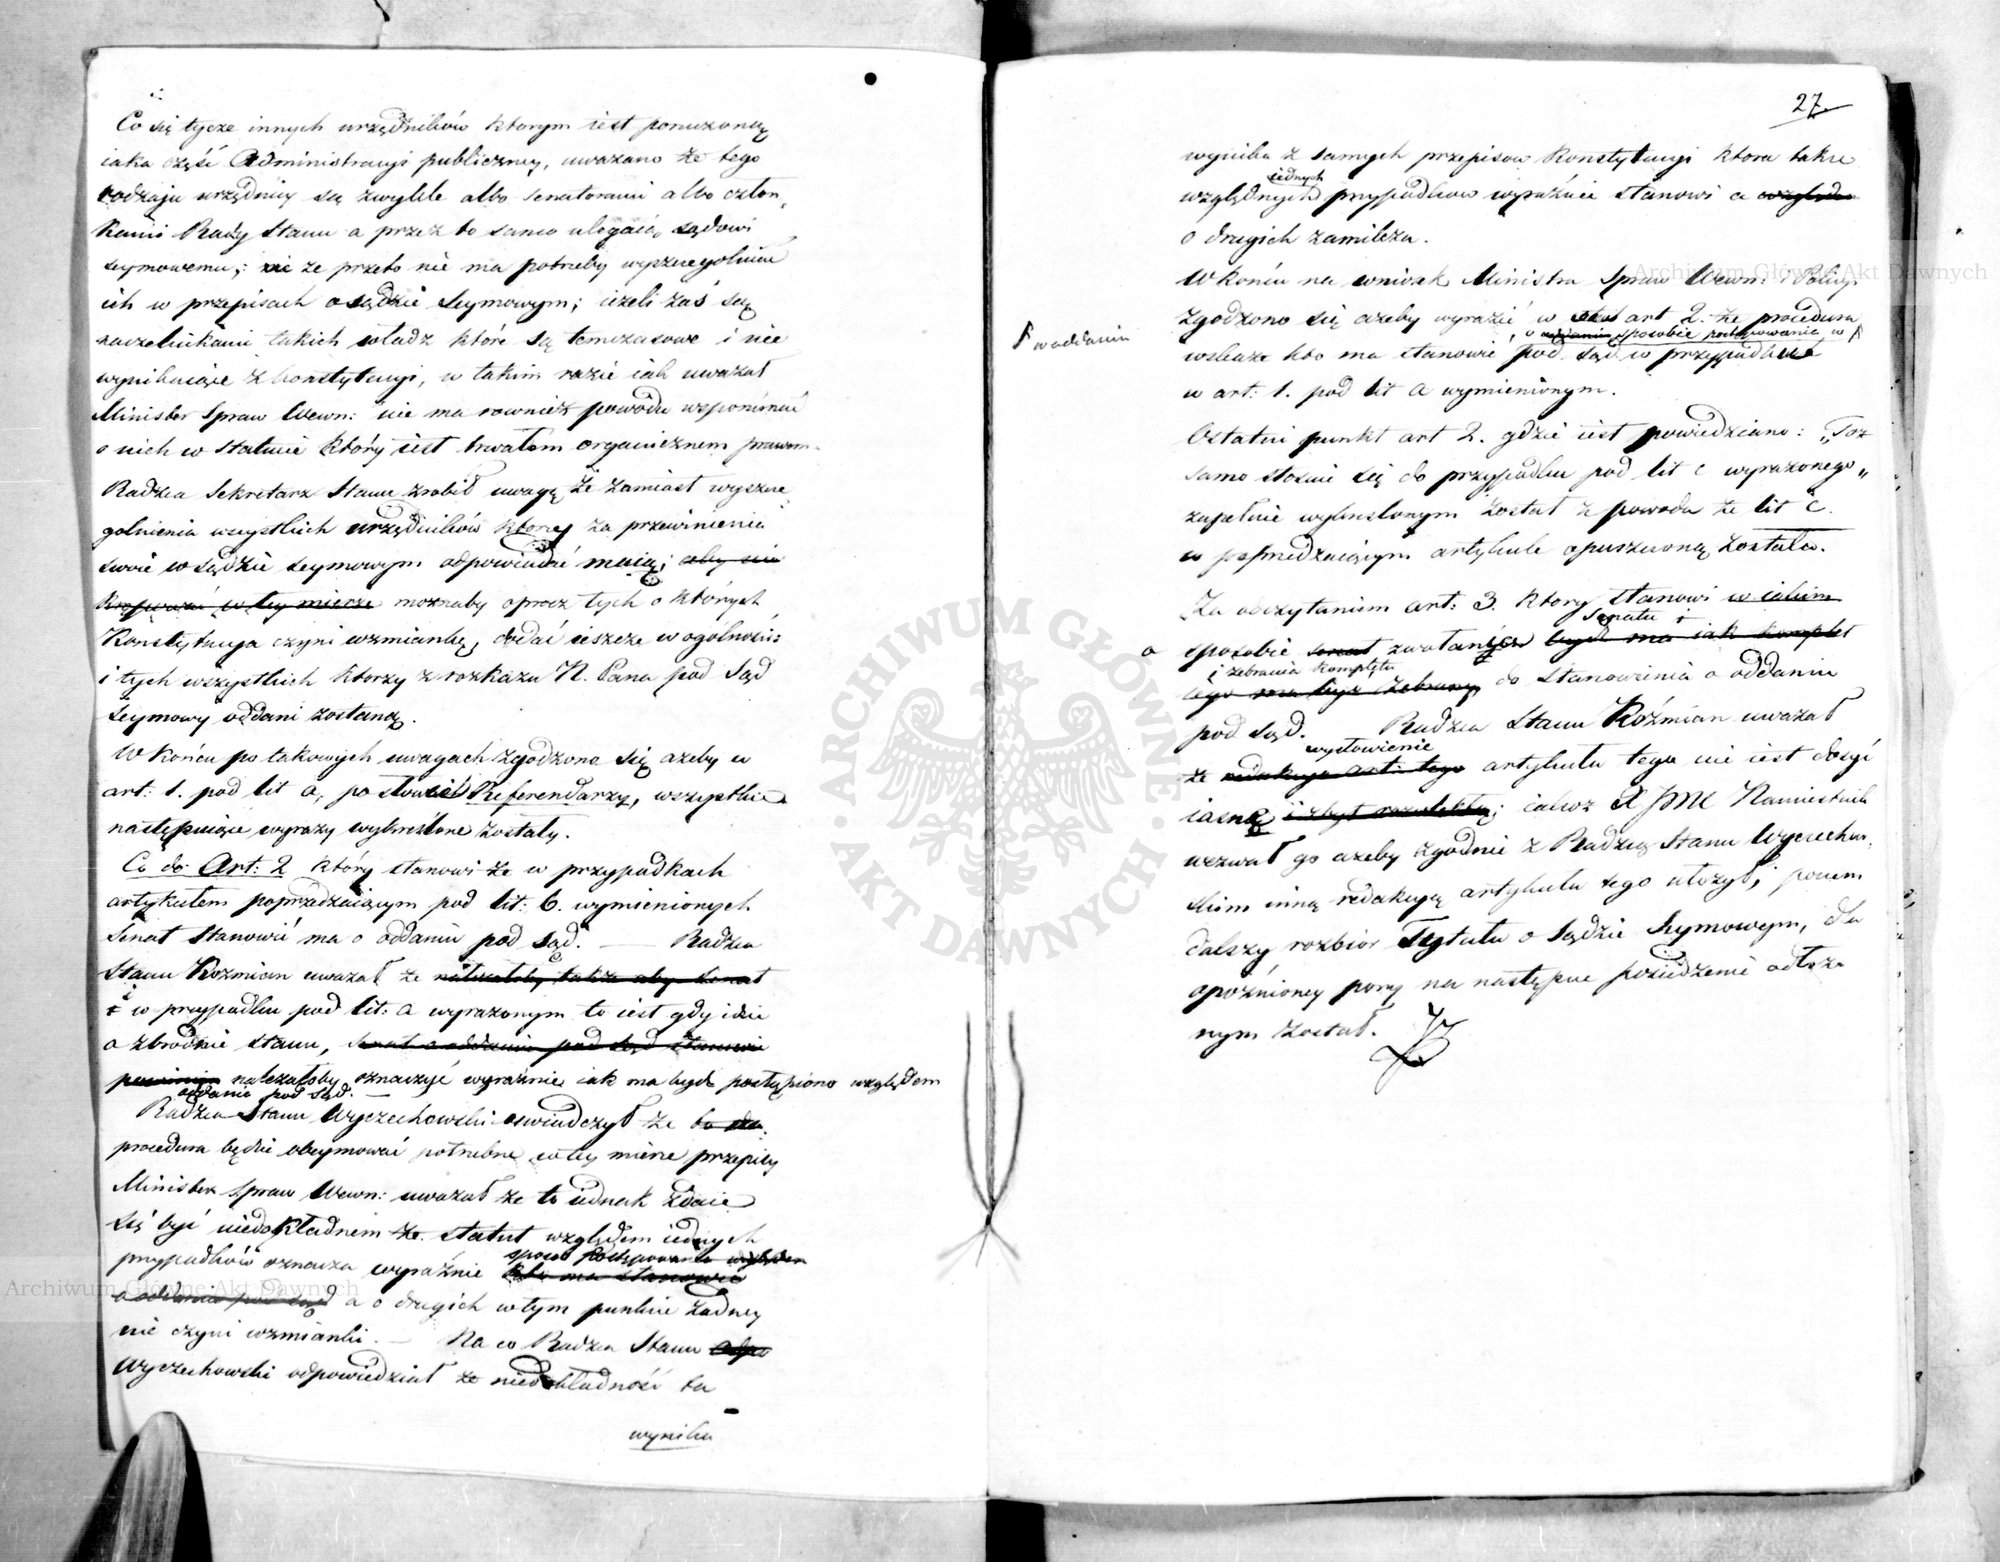 Co się tycze innych urzędników ktorym iest poruczoną
iaka część Administracyi publiczney, uważano że tego
rodzaju urzędnicy są zwykle albo senatorami albo człon,
kami Rady Stanu a przez to samo ulegaią sądowi
seymowemu; że przeto nie ma potrzeby wyszczegolniać
ich w przepisach o sądzie Seymowym; ieżeli zaś są
naczelnikami takich władz które są tymczasowe i nie
wynikaiące z konstytucyi, w takim razie iak uważał
Minister Spraw Wewn: nie ma rownież powodu wspominać
o nich w Statucie który iest trwałem organicznem prawem.
Radzca Sekretarz Stanu zrobił uwagę że zamiast wyszcze,
golnienia wszystkich urzędników ktorzy za przewinienia
swoie w sądzie seymowym odpowiadać maią; aby nie
w tey mierze możnaby oprocz tych o których
Konstytucya czyni wzmiankę, dodać ieszcze w ogolności:
i tych wszystkich ktorzy z rozkazu N. Pana pod Sąd
Seymowy oddani zostaną.
W końcu po takowych uwagach zgodzono się ażeby w
art: 1. pod lit a, po słowie Referendarzy, wszystkie
następuiące wyrazy wykreślone zostały.
Co do Art: 2 który stanowi że w przypadkach
artykułem poprzedzaiącym pod lit: b. wymienionych
Senat stanowić ma o oddaniu pod sąd. — Radzca
Stanu Koźmian uważał że należałoby także aby Senat
i w przypadku pod lit: a wyrażonym to iest gdy idzie
o zbrodnie stanu, Senat o oddaniu pod Sąd stanowił
powinien należałoby oznaczyć wyraźnie iak ma bydź postąpiono względem
oddania pod Sąd.
Radzca Stanu Wyczechowski oświadczył że to
procedura będzie obeymować potrzebne w tey mierze przepisy
Minister Spraw Wewn: uważał że to iednak zdaie
się być niedokładnem że statut względem iednych
sposob postępowania względem
przypadków oznacza wyraźnie kto ma stanowić
o oddaniu pod sąd a o drugich w tym punkcie żadney
nie czyni wzmianki. — Na co Radzca Stanu odpo
Wyczechowski odpowiedział że niedokładność ta
wynika
27.
wynika z samych przepisow Konstytucyi ktora takie
iednych
względnych przypadkow wyraźnie stanowi a względem
o drugich zamilcza.
W końcu na wniosek Ministra Spraw Wewn: i Policyi
Zgodzono się ażeby wyrazić w art 2. że procedura
, o oddaniu sposobie postępowania w
wskaże kto ma stanowić pod sąd w przypadku
w oddaniu
w art: 1. pod lit a wymienionym.
Ostatni punkt art 2. gdzie iest powiedziano: „Toż
samo stosuie się do przypadku pod lit c wyrażonego„
zupełnie wykreślonym został z powodu że lit c.
w poprzedzaiącym artykule opuszczoną została.
Za odczytaniem art: 3. ktory stanowi w iakim
Senatu i
o sposobie senat zwołania bydź ma iak komplet
i zebrania kompletu
iego ma być zebrany do stanowienia o oddaniu
pod sąd. Radzca Stanu Koźmian uważał
wysłowienie
że redakcya art: tego artykułu tego nie iest dosyć
iasne i zbyt rozwlekłą; iakoż X JMć Namiestnik
wezwał go ażeby zgodnie z Radzcą Stanu Wyczechow,
skim inną redakcyą artykułu tego ułożył; poczem
dalszy rozbior Tytułu o Sądzie Seymowym, dla
opóźnioney pory na następne posiedzenie odłożo
nym został.
Archiwum Główne Akt Dawnych
Archiwum Główne Akt Dawnych
ARCHIWUM GŁÓWNE · AKT DAWNYCH ·